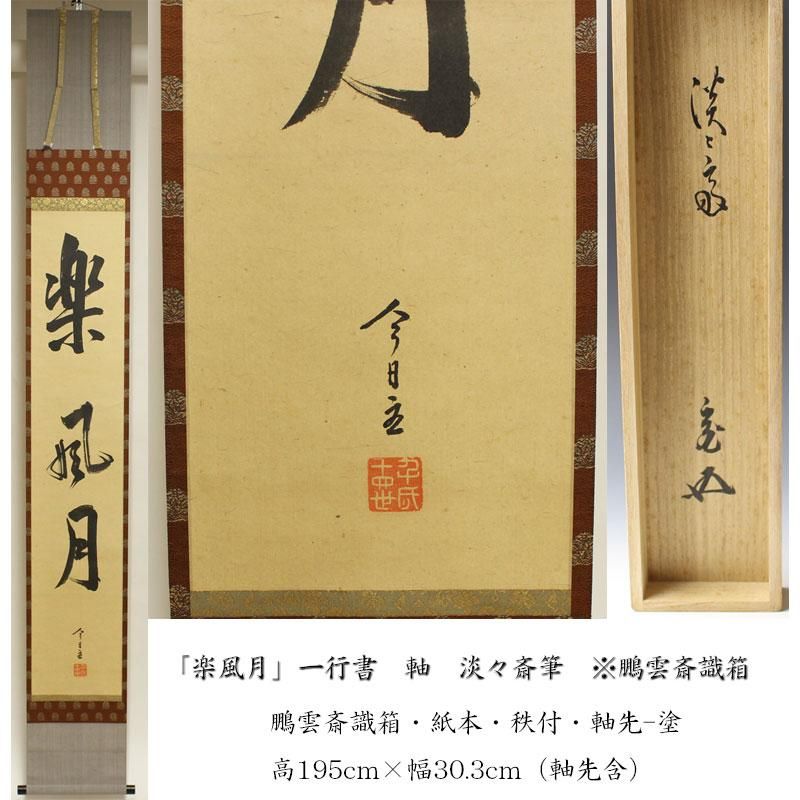 楽風月
今日主
月
今日主
千氏
十四世
淡々斎
「楽風月」一行書　軸　淡々斎筆　※鵬雲斎識箱
鵬雲斎識箱・紙本・秩付・軸先-塗
高195cm×幅30.3cm（軸先含）